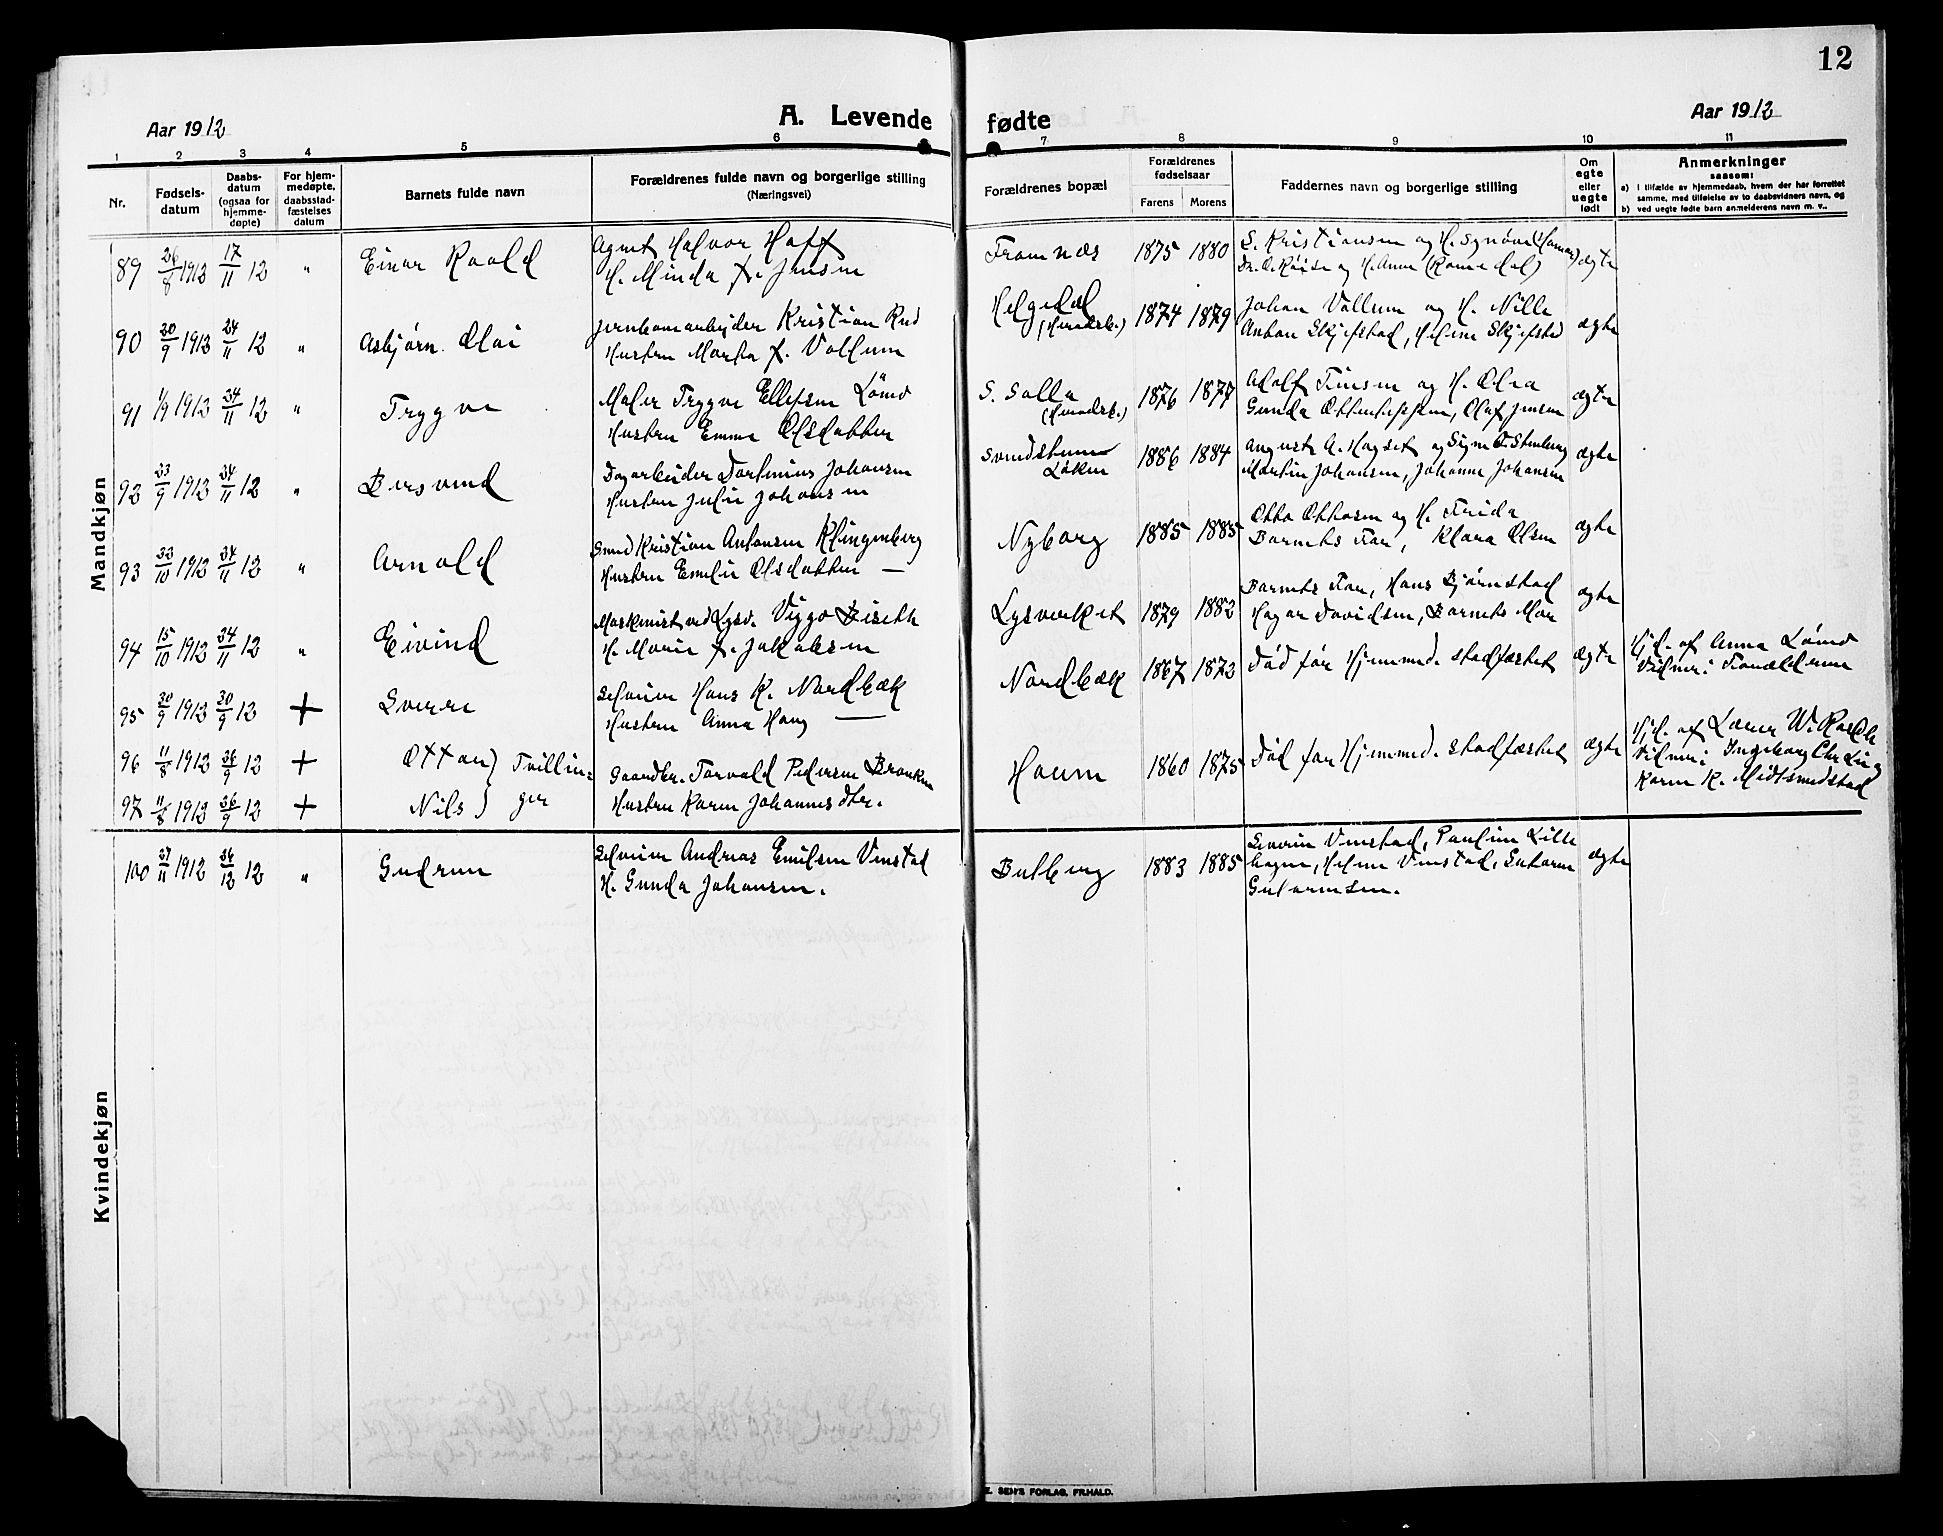 12
Aar 1912
A. Levende fødte
Aar 1912
1 2 3 4 5 6 7 8 9 10 11
Nr.
Fødsels-
datum
Daabs-
datum
(ogsaa for
hjemme-
døpte)
For hjem-
medøpte,
daabsstad-
fæstelses
datum
Barnets fulde navn
Forældrenes fulde navn og borgerlige stilling
(Næringsvei)
Forældrenes bopæl
Forældrenes
fødselsaar
Farens Morens
Faddernes navn og borgerlige stilling
Om
egte
eller
uegte
født
Anmerkninger
saasom:
a) i tilfælde av hjemmedaab, hvem der har forrettet
samme, med tilføielse av to daabsvidners navn, og
b) ved uegte fødte barn anmelderens navn m. v..
Mandkjøn
89 26/8 1912 17/11 12 " Einar Roald
Agent Halvor Hoff
H. Minda f. Jensen
Framnæs 1875 1880
S. Kristiansen og H. Synøve (Hamar)
og H. Anna (Romedal)
ægte
90 20/9 1912 24/11 12 " Asbjørn Olai
Jernbanearbeider Kristian Rud
Hustru Marta f. Vollum
Helgedal 1874 1879
Johan Vollum og H. Nille
Anton Skjefstad, Helene Skjefstad
ægte
91 1/9 1912 24/11 12 " Trygve
Maler Trygve Ellefsen Lømo
Hustru Emma Olsdatter
S. Salla 1876 1877
Adolf Finsen og H. Olea
Gunda Olaf Jensen
ægte
92 23/9 1912 24/11 12 " Bersvend
Dagarbeider Dortinius Johansen
Hustru Julie Johansen
Løken 1886 1884
August A. Hagset og Signe O. Stenberg
Martin Johansen, Johanne Johansen
ægte
93 23/10 1912 24/11 12 " Arnold
Smed Kristian Antonsen Klingenberg
Hustru Emilie Olsdatter —
Nyborg 1885 1885
Otto Ottosen og H. Frida
Barnets Far, Klara Olsen
ægte
94 15/10 1912 24/11 12 " Eivind
Maskinist ved Lysv. Viggo Diseth
H. Marie f. Jakobsen
Lysverket 1879 1882
Barnets Far, Hans Bjørnstad
Hagar Davidsen, Barnets Mor
ægte
95 20/9 1912 30/9 12 + Sverre
Selveier Hans K. Nordbæk
Hustru Anna Haug —
Nordbæk 1867 1872
Død før Hjemmed. stadfæstet
ægte
Hjd. af Anna Lømo
Vidner: Forældrene
96 11/8 1912 26/9 12 + Ottar } Tvillin-
97 11/8 1912 26/9 12 + Nils } ger
Gaardbr. Torvald Pedersen
Hustru Karen Johannesdtr.
Houm 1860 1875
Død før Hjemmed. stadfæstet
ægte
Hjd. af Lærer W.
Vidner: Ingeborg Chr. Lie og
Karen K. Midtsundstad
Kvindekjøn
100 27/11 1912 26/12 12 " Gudrun
Selveier Andreas Emilsen Vinstad
H. Gunda Johansen.
Butberg 1883 1885
Severin Vinstad, Pauline Lille
hagen, Helene Vinstad, Guttorm
Guttormsen.
ægte
SEN'S FORLAG, FR.HALD.